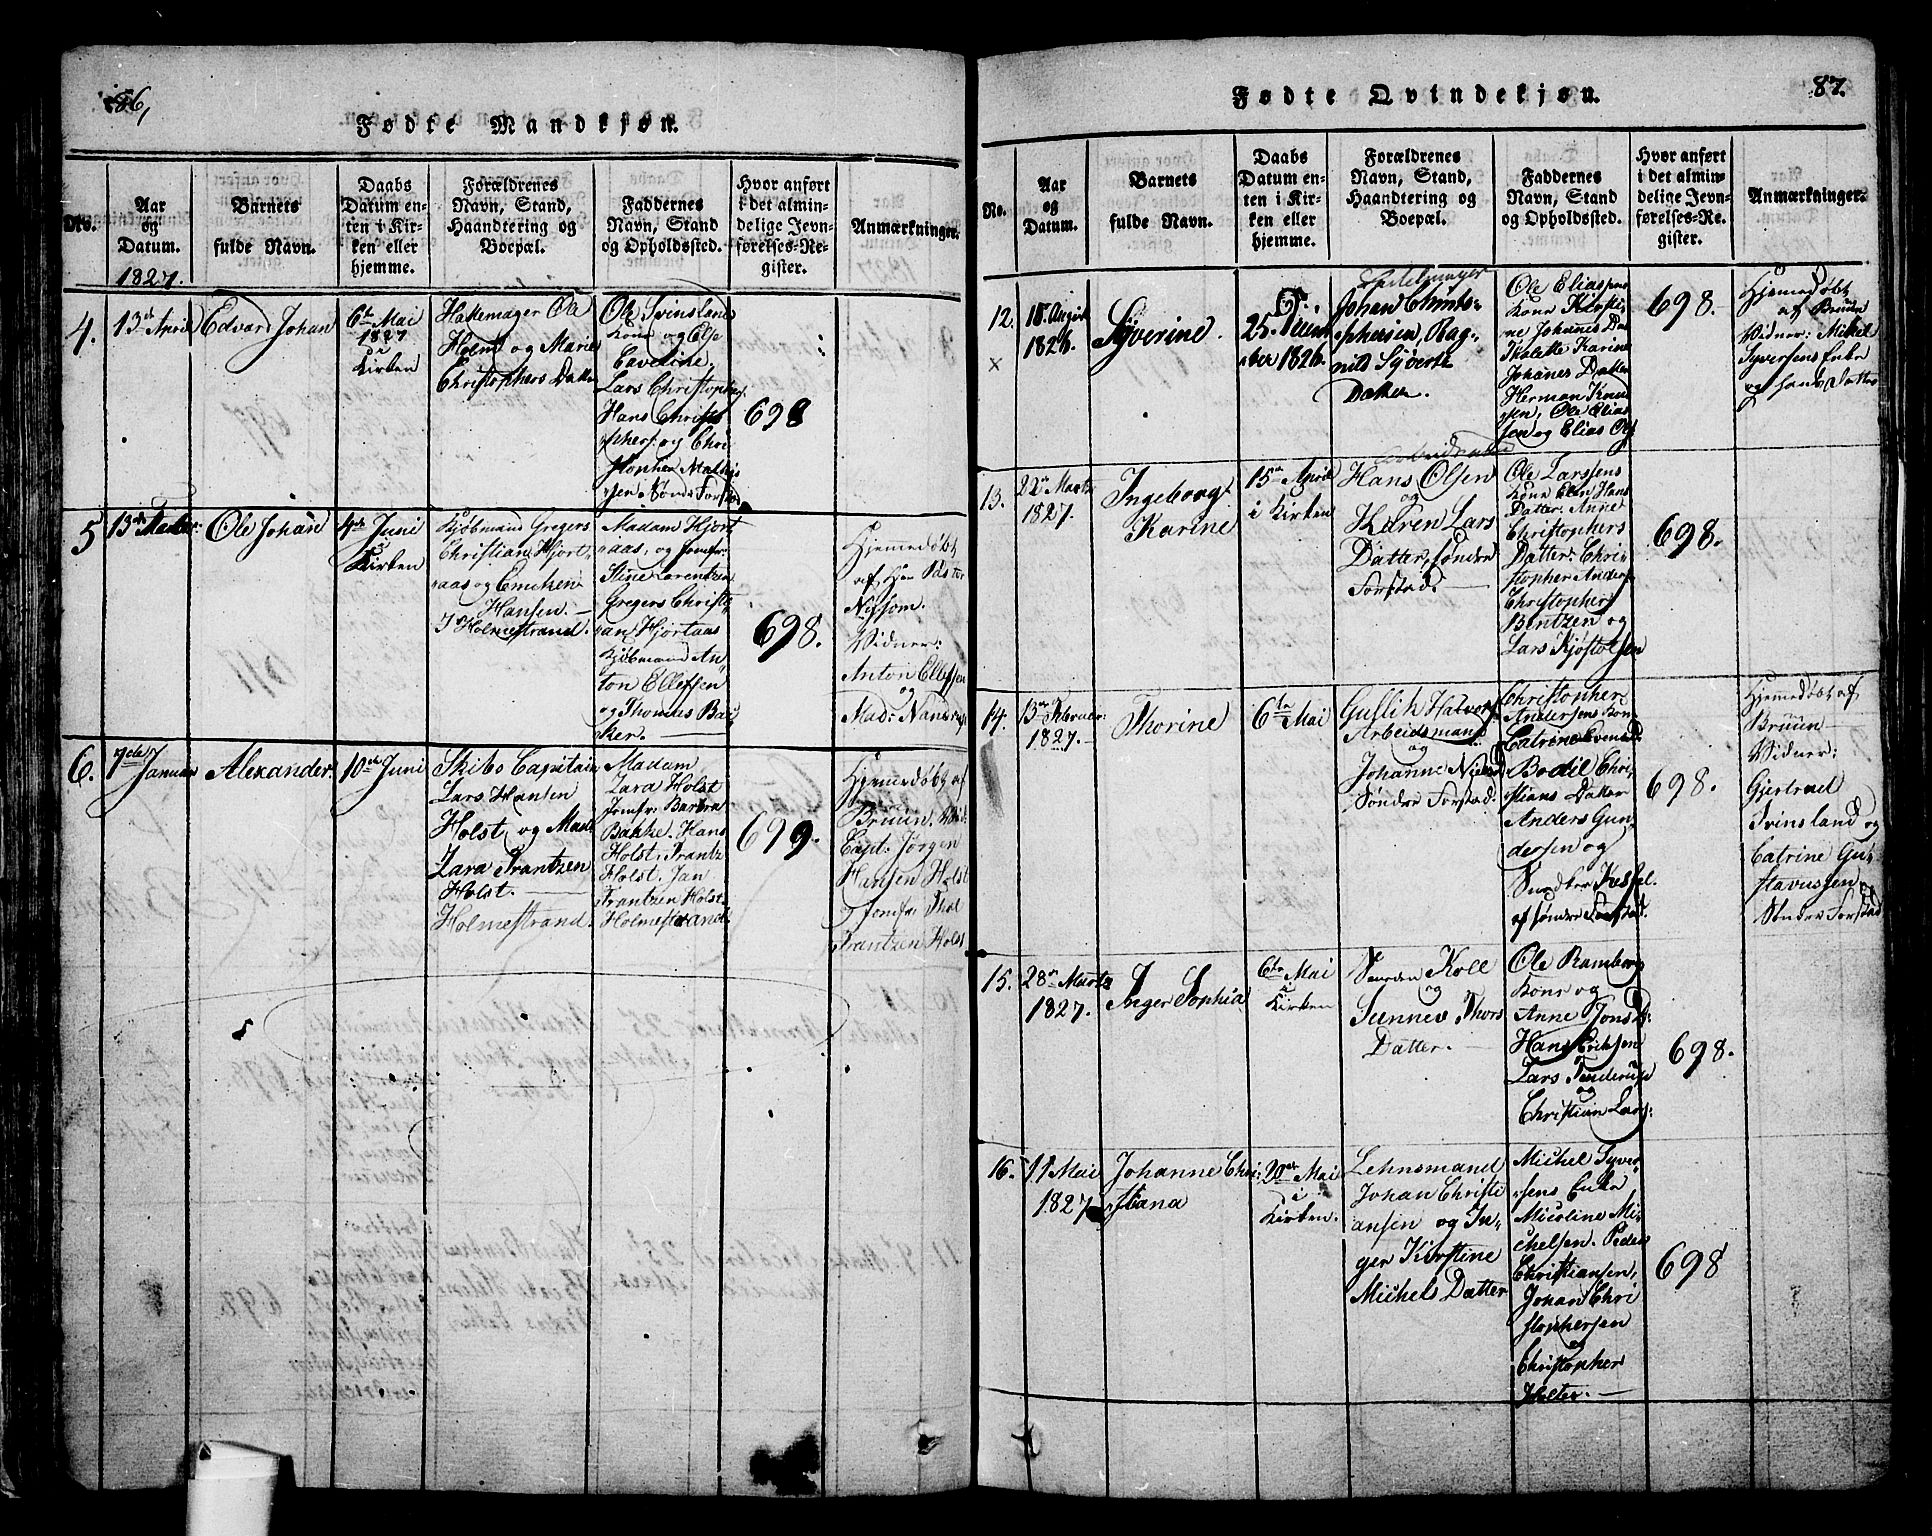 86,
Fødte Mandkjøn.
No.
Aar
og
Datum.
Barnets
fulde Navn.
Daabs
Datum en-
ten i Kir-
ken eller
hjemme.
Forældrenes
Navn, Stand,
Haandtering og
Boepæl.
Faddernes
Navn, Stand
og Opholdssted.
Hvor anført
i det almin-
delige Jevn-
førelses-Re-
gister.
Anmærkninger.
1827.
4.
13de April
Edvard Johan
6te Mai
1827
i
Kirken
Hakemager Ole
Holm og Marie
Christophers Datter
Ole Svinsland
Kone og Else
Lars Christoph
Hans Christo
phers: og Chri
stopher Mathi
sen Søndre Forstad
698
5
13de
Ole Johan
4de Juni
i
Kirken
Kjøbmand Gregers
Christian Hjort
aas og Emichen
Hansen.
I Holmestrand.
Madam Hjort
aas, og Jomfr:
Stine Lorentzen
Gregers Christi
an Hjortaas
Kjøbmand An
ton Ellefsen
og Thomas Bac
ker.
698.
Hjemmedøbt
af Herr Pastor
Vidner:
Anton Ellefsen
og
Mads Nandrup
6.
7de Januar
Alexander.
10de Juni
Skibs Capitain
Lars Hansen
Holst og Mad:
Zara Frantzen
Holst.
Holmestrand.
Madam
Zara Holst
Jomfr: Barbra
Bakke. Hans
Holst, Frantz
Holst. Jan
Frantzen Holst
Holmestrand.
699.
Hjemmedøbt af
Bruun.
Capt. Jørgen
Hansen Holst
Jomfr:
Frantzen Holst
87.
Fødte Qvindekjøn.
No.
Aar
og
Datum.
Barnets
fulde Navn.
Daabs
Datum en-
ten i Kir-
ken eller
hjemme.
Forældrenes
Navn, Stand,
Haandtering og
Boepæl.
Faddernes
Navn, Stand
og Opholdssted.
Hvor anført
i det almin-
delige Jevn-
førelses-Re-
gister.
Anmærkninger.
12.
18. August
1826.
Syverine.
25.
ber 1826.
Johan Christo-
phersen, Rag-
nild Syverts
Datter.
Ole Elias
Kone
ne Johannes Dat
Karine
Johanes Datter
Herman Knud
sen, Ole Elias
sen og Elias Ols
698.
Hjemmedøbt
af Bruun
Vidner: Mikel
Syversens Enke
og hans Datter
13.
22de Marts
1827.
Ingeborg
Karine
15de April
i Kirken
Arbeidsmand
Hans Olsen
og
Karen Lars
Datter, Søndre
Forstad.
Ole Larssens
Kone Elen Hans
Datter. Anne
Christophers
Datter. Chri-
stopher Anders
Christopher
Berntzen og
Lars Kjøstolsen
698.
14.
13de Februar
1827.
Thorine
6te Mai
Gullik Halvors
Arbeidsmand
og
Johanne Niels D
Søndre Forstad.
Christopher
Andersens Kone
Catrine
Bodil Chri
stians Datter
Anders Gun
dersen og
af Søndre Forstad.
698.
Hjemmedøbt af
Bruun
Vidner:
Gjertrud
Svinsland og
Catrine Gu
stavussen
Søndre Forstad
15.
28de Marts
1827.
Inger Sophia
6te Mai
i
Kirken
Koll
og
Sunnev Thors
Datter.
Ole Ramberg
Kone og
Anne Jons D:
Hans Eriksen
Lars
og
Christian Lars:
698.
16.
11 Mai
1827
Johanne Chri-
stiana
20de Mai
i
Kirken.
Lehnsmand
Johan Christi
ansen og In-
ger Kirstine
Michels Datter
Michel Syver
sens Enke
Micoline Mi-
chelsen. Peder
Christiansen,
Johan Chri
stophersen
og
Christopher
Holter.
698